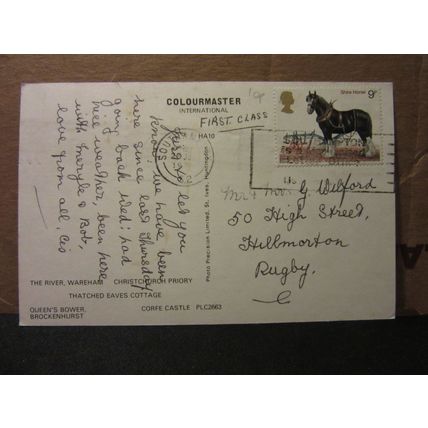 COLOURMASTER
INTERNATIONAL
FIRST CLASS
HA10
Shire Horse
9P
Just to let you
know we have been
here since last Thursday
going back Wed: had
nice weather, been here
with Meryle & Bob,
love from all, Cis
Photo Precision Limited, St. Ives, Huntingdon
Mr & Mrs G Wilford
50 High Street,
Hillmorton
Rugby.
THE RIVER, WAREHAM CHRISTCHURCH PRIORY
THATCHED EAVES COTTAGE
QUEEN'S BOWER, CORFE CASTLE PLC2663
BROCKENHURST